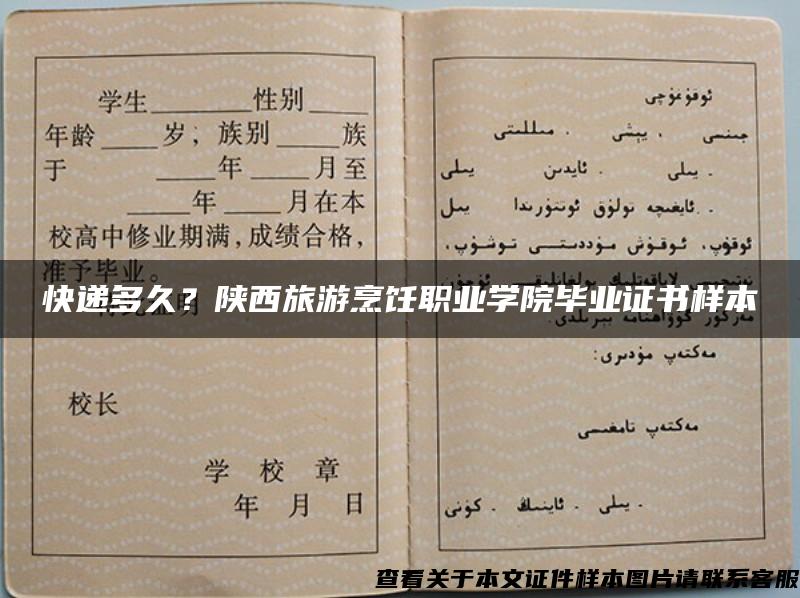 学生________性别_____
年龄_____岁；族别_____族
于 _____年_____月至
_____年_____月在本
校高中修业期满，成绩合格，
准予毕业。
校长
学 校 章
年 月 日
ئوقۇغۇچى
جىنسى . يېشى . مىللىتى
. يىلى . ئايدىن يىلى
. ئايغىچە تولۇق ئوتتۇرىدا يىل
ئوقۇپ، ئوقۇش مۇددىتى توشۇپ،
مەكتەپ مۇدىرى:
مەكتەپ تامغىسى
. يىلى . ئاينىڭ . كۈنى
快递多久？陕西旅游烹饪职业学院毕业证书样本
查看关于本文证件样本图片请联系客服